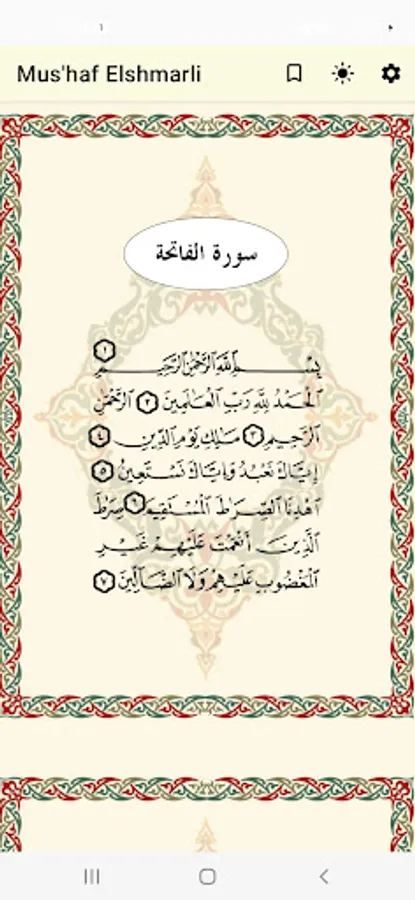 Mus'haf Elshmarli
سورة الفاتحة
بِسْمِ ٱللَّهِ ٱلرَّحْمَٰنِ ٱلرَّحِيمِ ١
ٱلْحَمْدُ لِلَّهِ رَبِّ ٱلْعَٰلَمِينَ ٢ ٱلرَّحْمَٰنِ
ٱلرَّحِيمِ ٣ مَٰلِكِ يَوْمِ ٱلدِّينِ ٤
إِيَّاكَ نَعْبُدُ وَإِيَّاكَ نَسْتَعِينُ ٥
ٱهْدِنَا ٱلصِّرَٰطَ ٱلْمُسْتَقِيمَ ٦ صِرَٰطَ
ٱلَّذِينَ أَنْعَمْتَ عَلَيْهِمْ غَيْرِ
ٱلْمَغْضُوبِ عَلَيْهِمْ وَلَا ٱلضَّآلِّينَ ٧